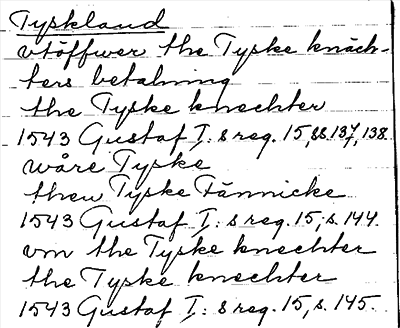 Tyskland
vtöffwer the Tyske knäch-
ters betalning
the Tyske knechter
1543 Gustaf I: s reg. 15, ss. 137, 138.
wåre Tyske
thew Tyske Fännicke
1543 Gustaf I: s reg. 15, s. 144.
vm the Tyske knechter
the Tyske knechter
1543 Gustaf I: s reg. 15, s. 145.